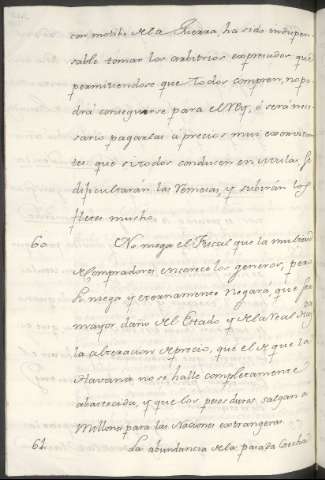 con motibo de la Guerra, ha sido indispen-
sable tomar los arbitrios expresados que
permitiendose que todos compren, no po-
drá conseguirse para el Rey, ó será nece-
sario pagarlas á precios mui exorvitan-
tes que si todos conducen en virtud se
dificultarán las Remesas, y subirán los
fletes mucho.
60 No niega el Fiscal que la multitud
de Compradores encarece los generos, pero
si niega y eternamente negara, que sea
mayor daño del Estado y de la Real Haz.
la alteracion de precio, que el de que la
Havana no se halle completamente
abastecida, y que los pesos duros salgan a
Millones para las Naciones extrangeras.
61. La abundancia de la pasada Cosecha